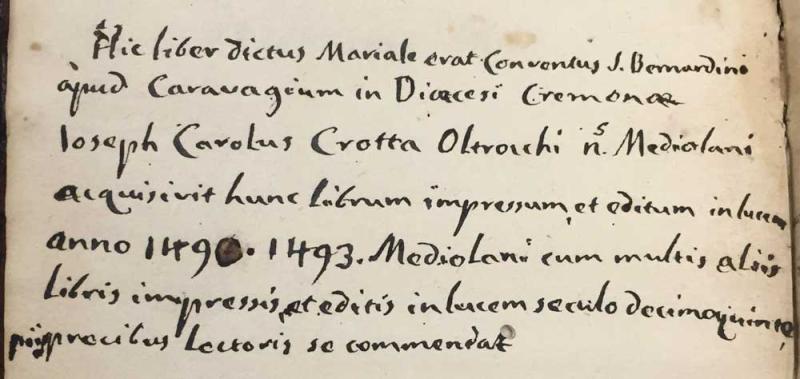 Hic liber dictus Mariale erat Conventus S. Bernardini
apud Caravagium in Diœcesi Cremonæ
Ioseph Carolus Crotta Oltrocchi n.s Mediolani
acquisivit hunc librum impressum, et editum in lucem
anno 1490. 1493. Mediolani cum multis aliis
libris impressis, et editis in lucem seculo decimoquinto,
piisprecibus Lectoris se commendat